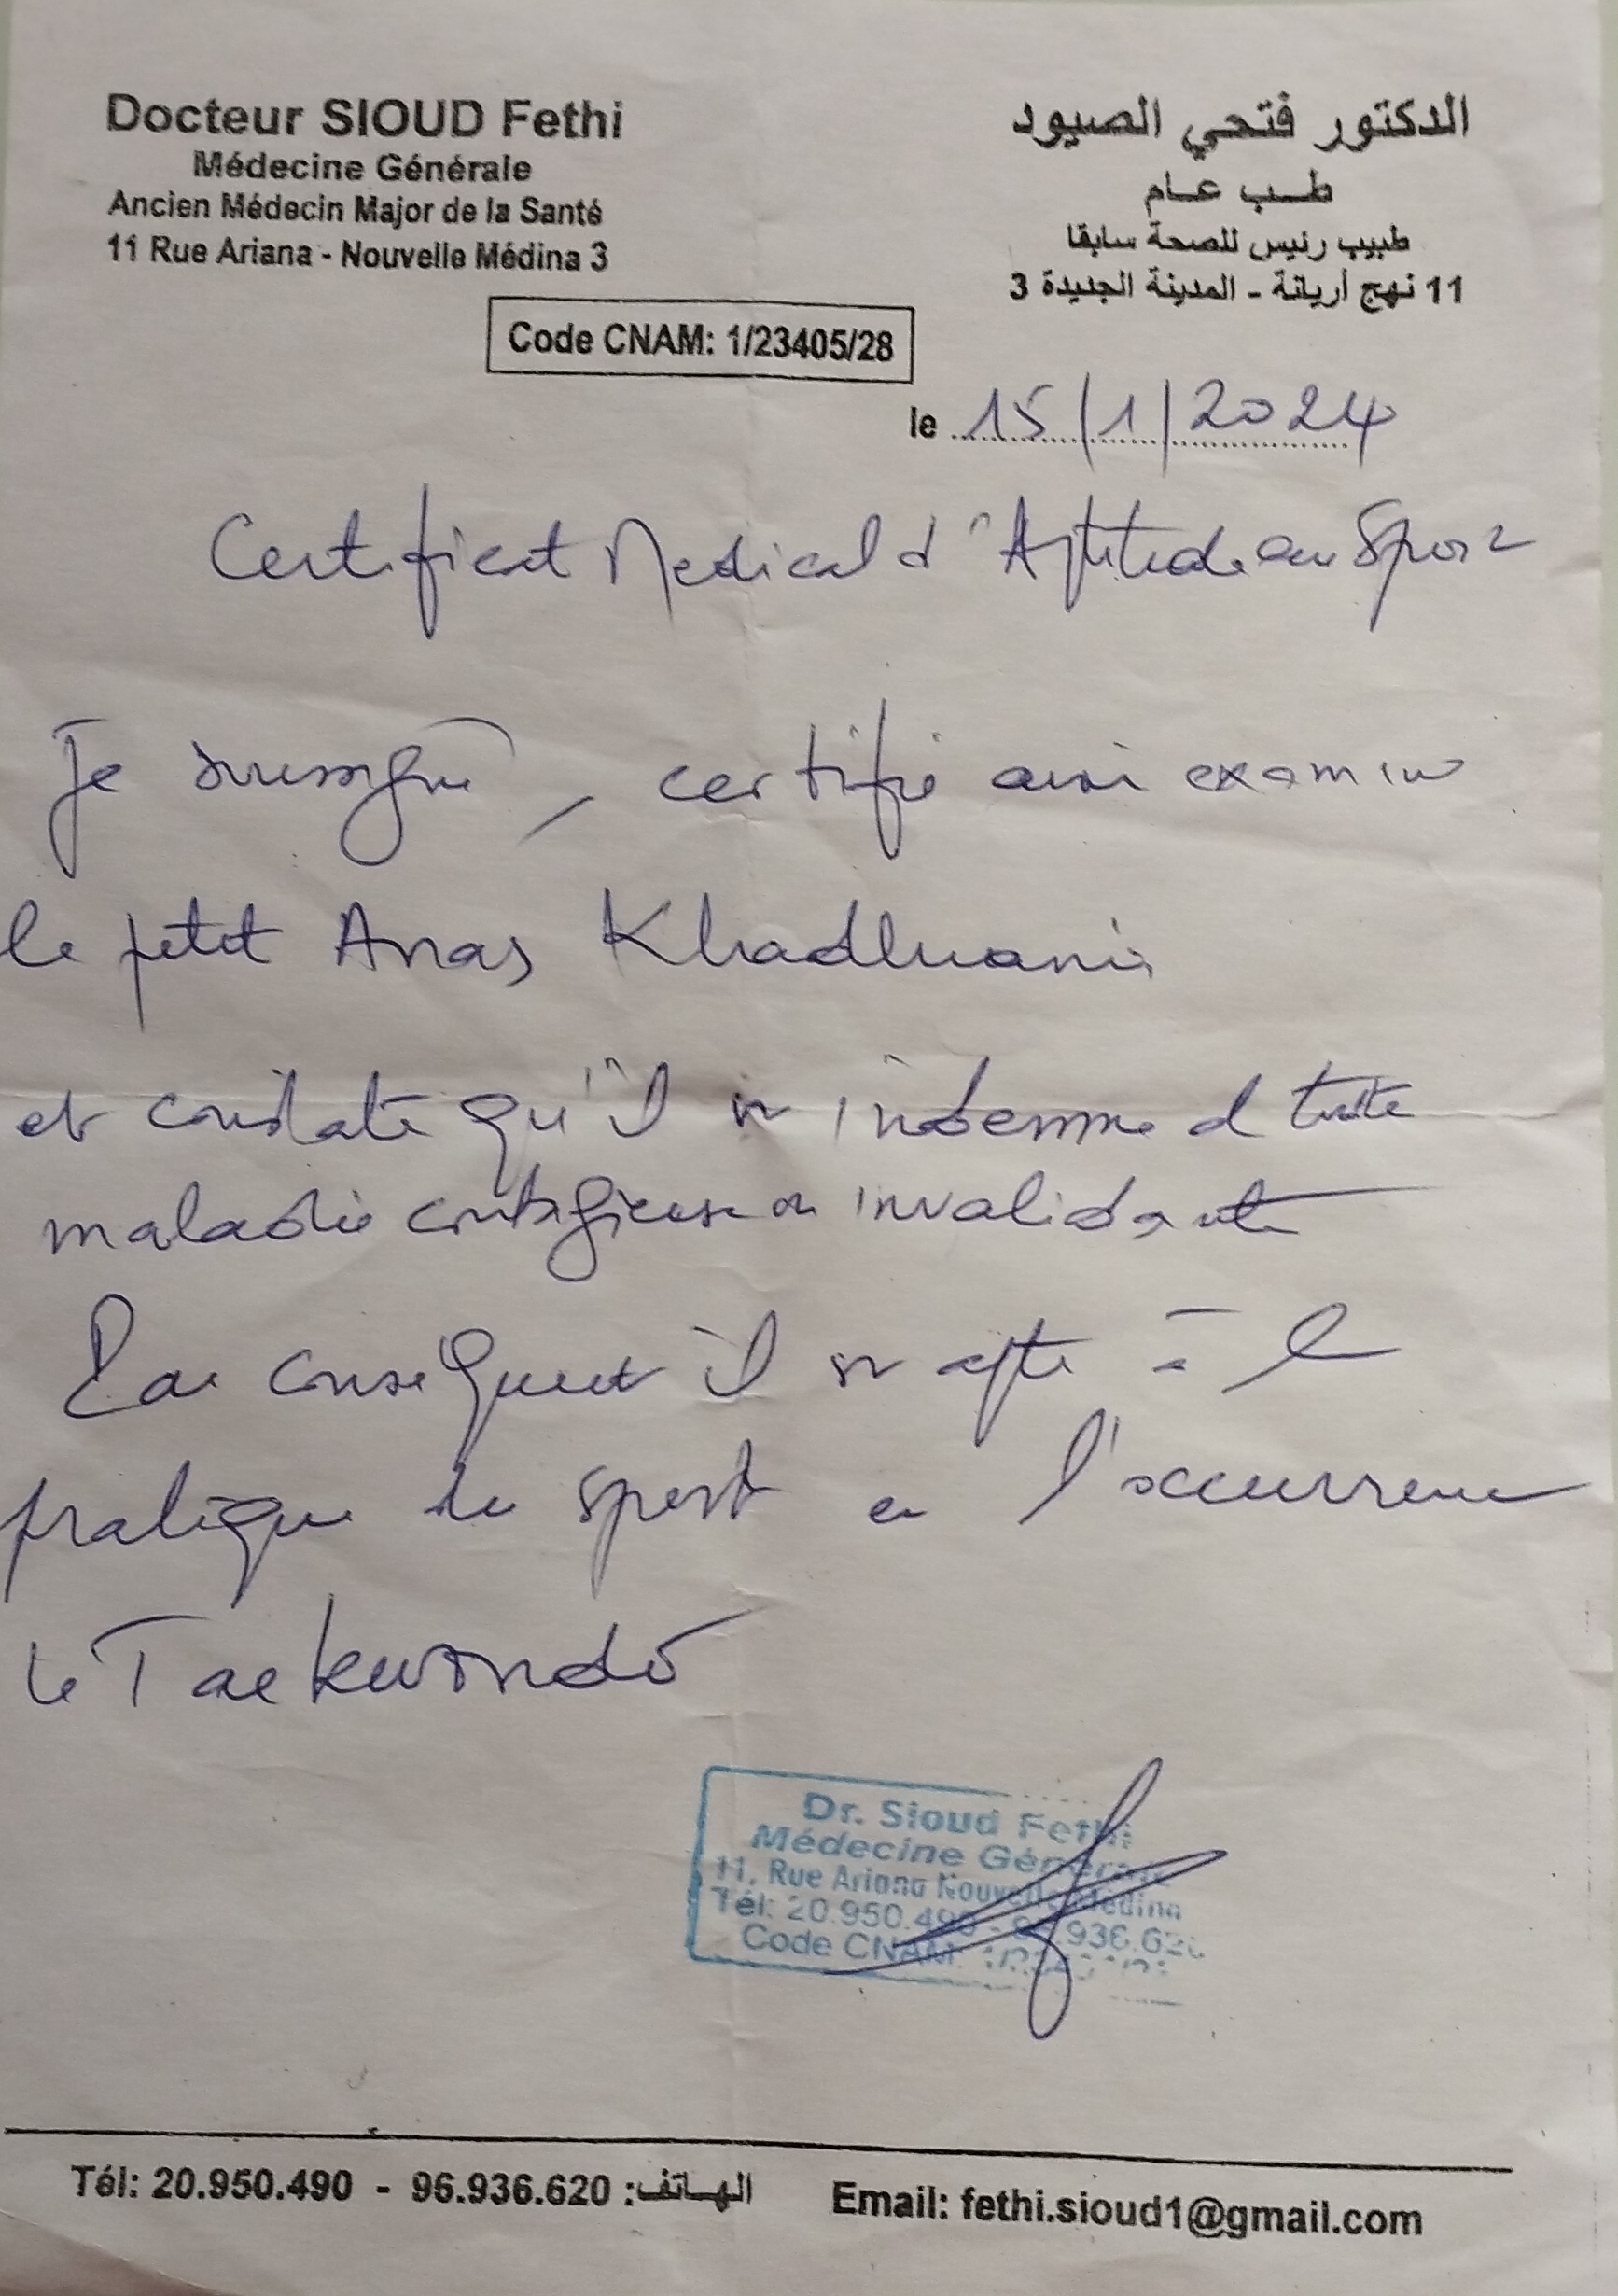 Docteur SIOUD Fethi
Médecine Générale
Ancien Médecin Major de la Santé
11 Rue Ariana - Nouvelle Médina 3
الدكتور فتحي الصيود
طب عام
طبيب رئيس للصحة سابقا
11 نهج أريانة - المدينة الجديدة 3
Code CNAM: 1/23405/28
le 15/1/2024
Certificat Medical d'Aptitude au Sport
Je soussigné, certifie avoir examiné
le petit Anas Khadhrani
et constaté qu'il est indemne de toute
maladie contagieuse ou invalidante
Par conséquent il est apte à la
pratique du sport en l'occurrence
le Taekwondo
Dr. Sioud Fethi
Médecine Générale
11, Rue Ariana Nouvelle Médina
Tél: 20.950.490 - 96.936.620
Code CNAM:
Tél: 20.950.490 - 96.936.620 :الهاتف
Email: fethi.sioud1@gmail.com